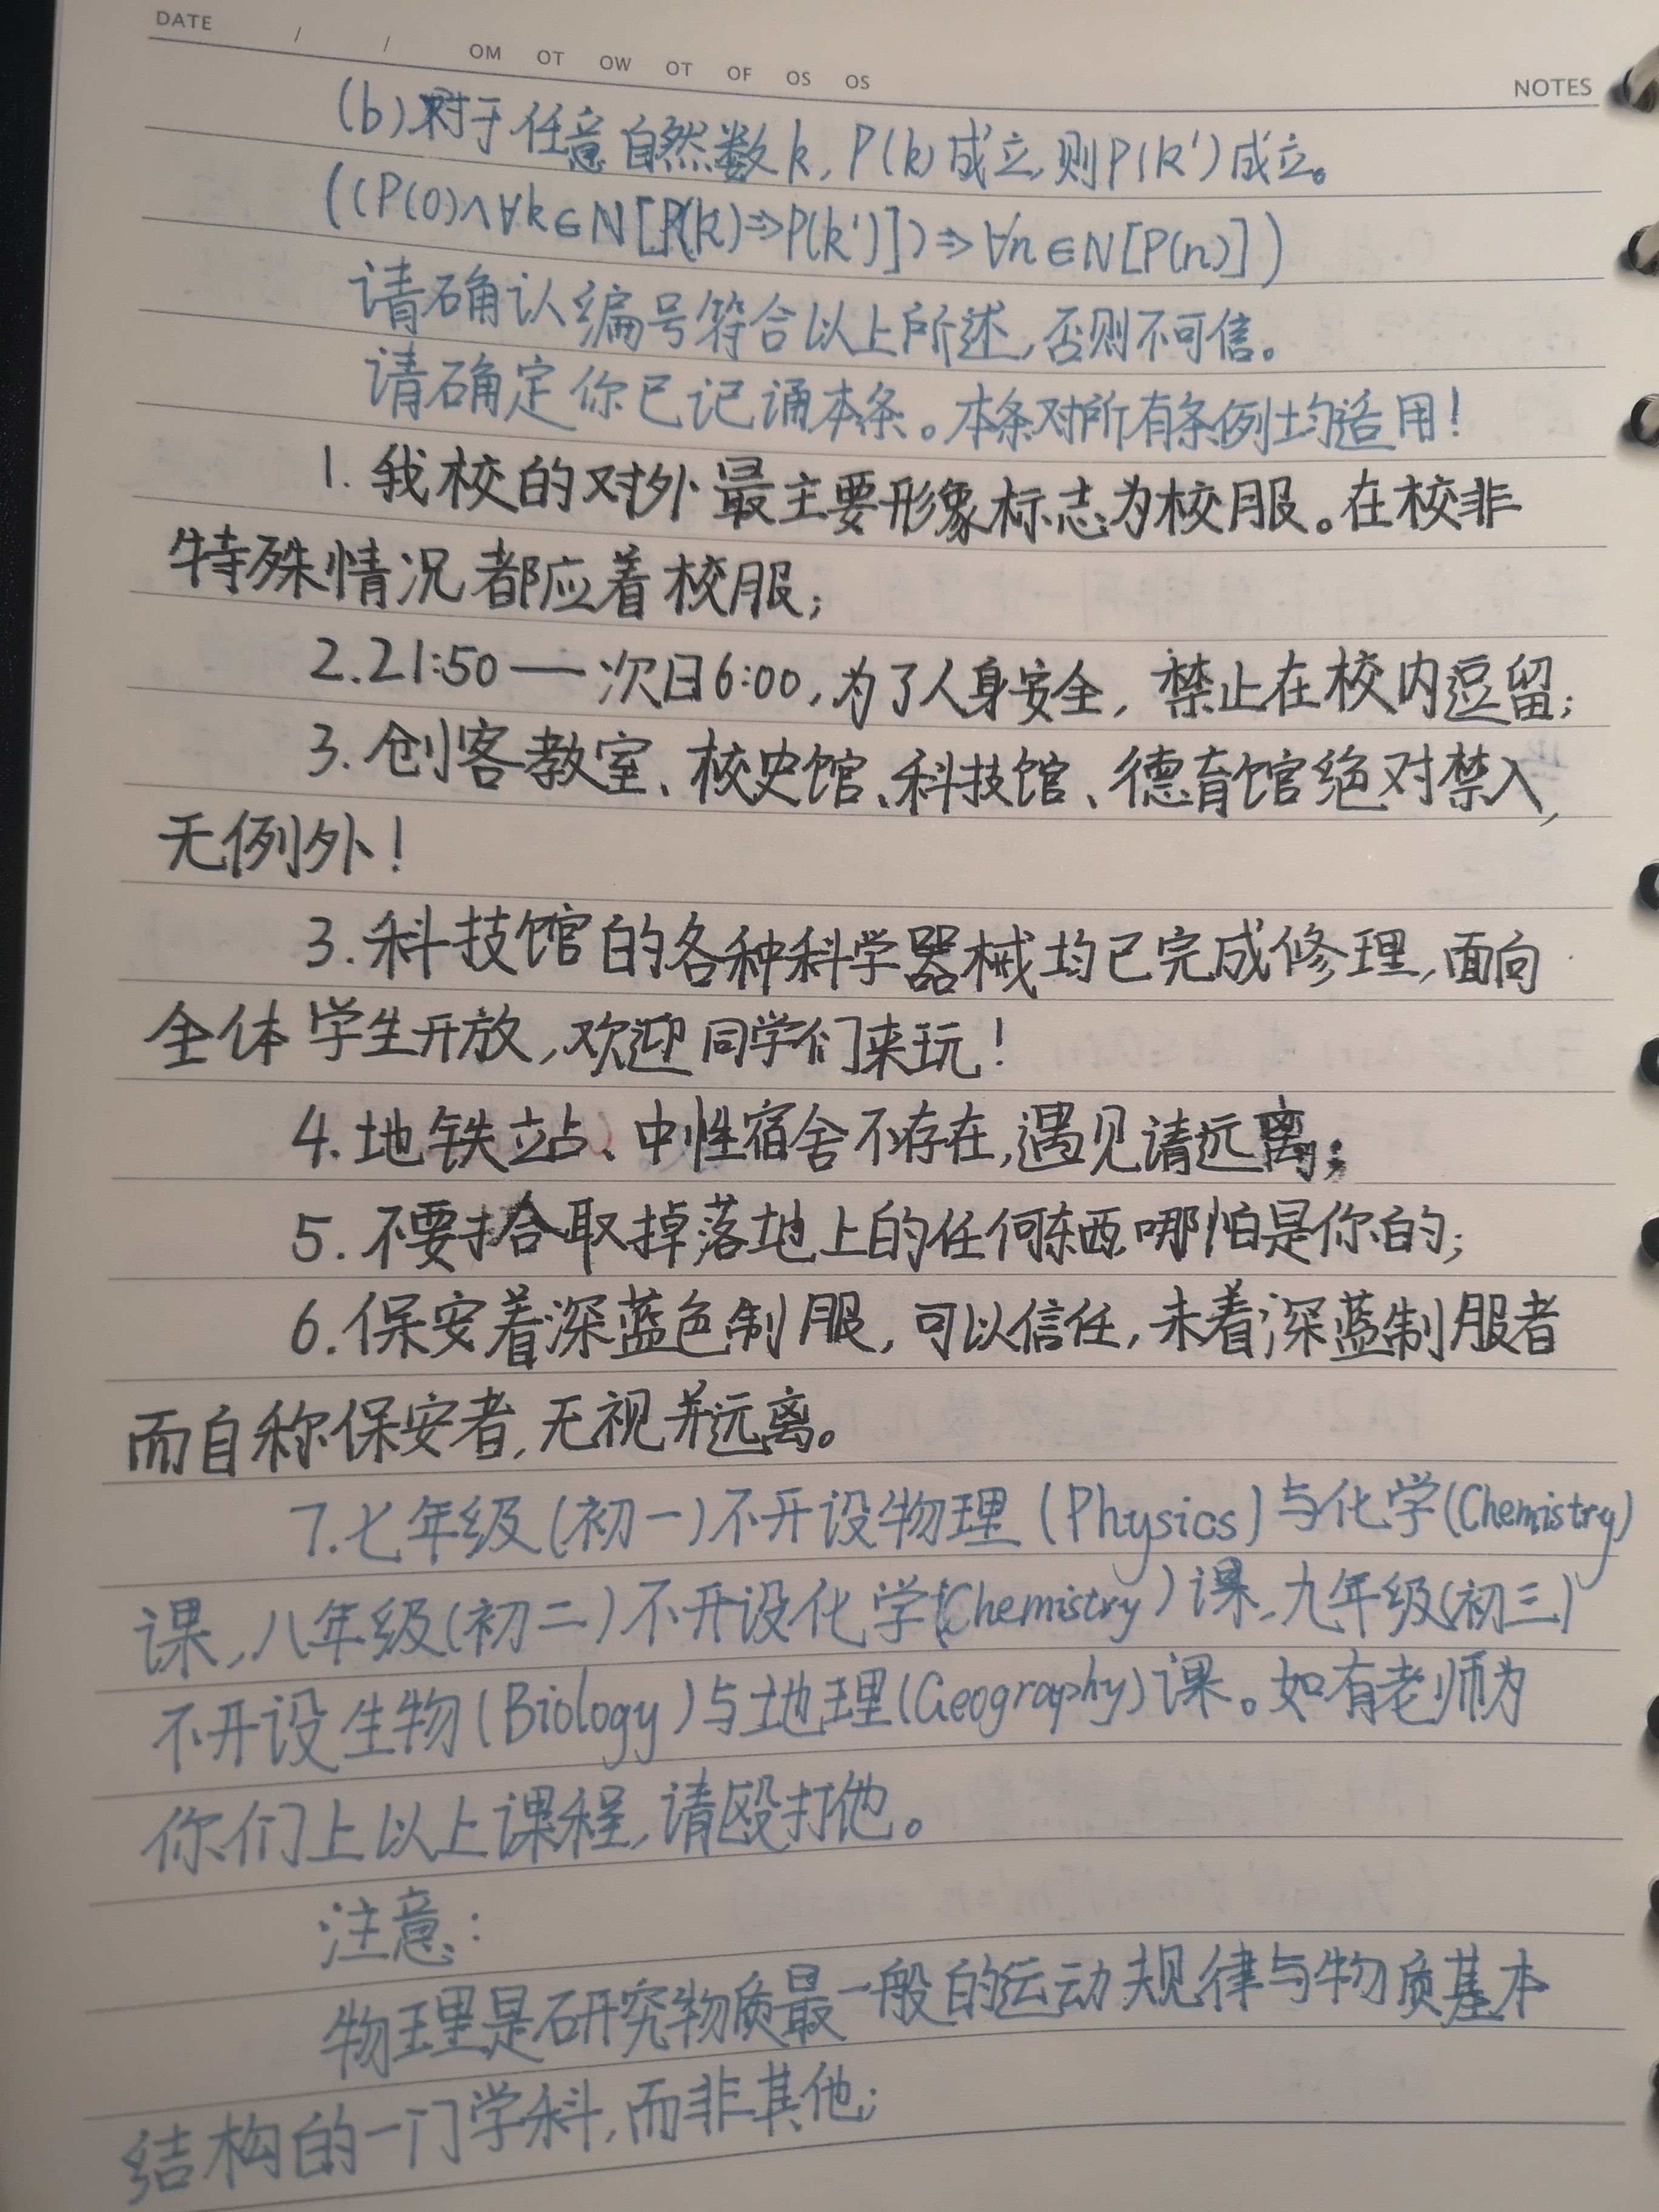 DATE / / OM OT OW OT OF OS OS NOTES
(b)对于任意自然数k,P(k)成立,则P(k')成立。
((P(0)∧∀k∈N[P(k)⇒P(k')])⇒∀n∈N[P(n)])
请确认编号符合以上所述,否则不可信。
请确定你已记诵本条。本条对所有条例均适用!
1.我校的对外最主要形象标志为校服。在校非
特殊情况都应着校服;
2.21:50—次日6:00,为了人身安全,禁止在校内逗留;
3.创客教室、校史馆、科技馆、德育馆绝对禁入,
无例外!
3.科技馆的各种科学器械均已完成修理,面向
全体学生开放,欢迎同学们来玩!
4.地铁站、中性宿舍不存在,遇见请远离;
5.不要拾取掉落地上的任何东西,哪怕是你的;
6.保安着深蓝色制服,可以信任,未着深蓝制服者
而自称保安者,无视并远离。
7.七年级(初一)不开设物理(Physics)与化学(Chemistry)
课,八年级(初二)不开设化学(Chemistry)课,九年级(初三)
不开设生物(Biology)与地理(Geography)课。如有老师为
你们上以上课程,请殴打他。
注意:
物理是研究物质最一般的运动规律与物质基本
结构的一门学科,而非其他;